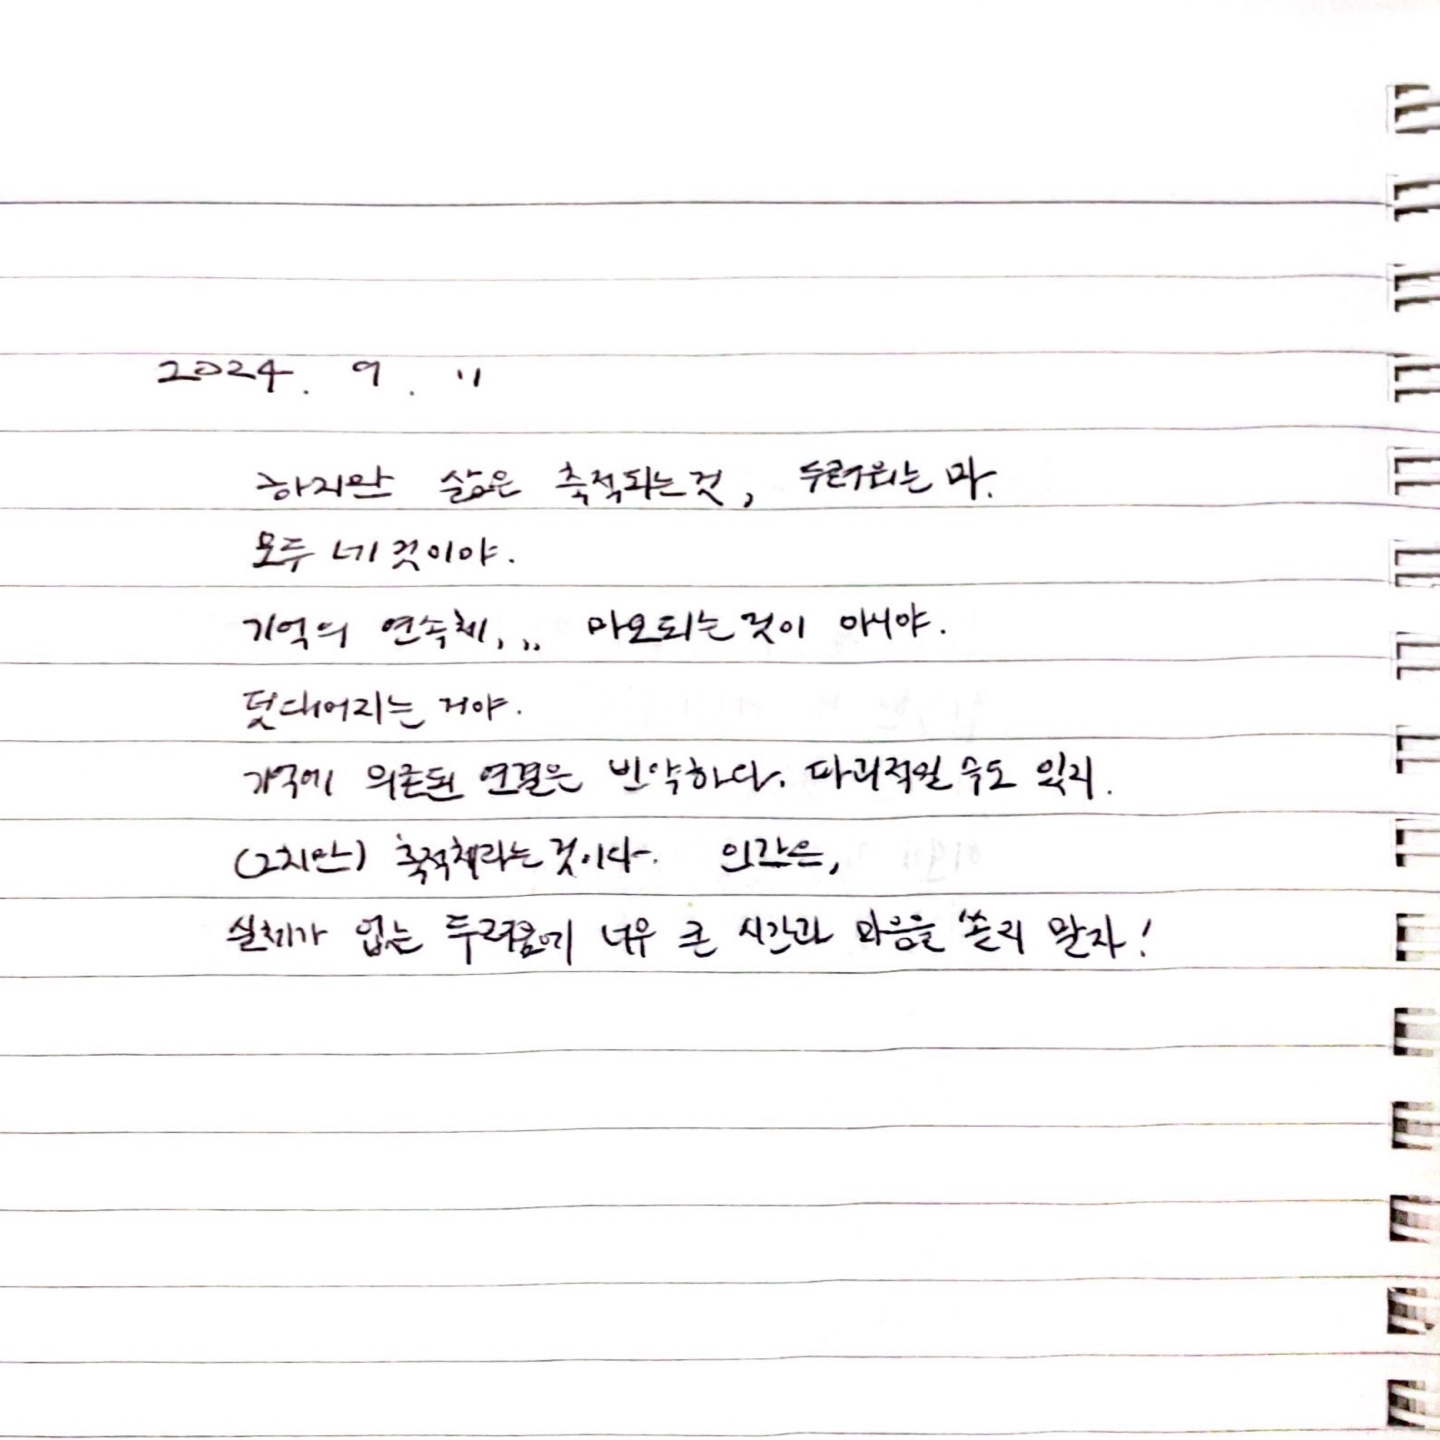 2024. 9. 11
하지만 삶은 축적되는 것, 두려워는 마.
모두 네 것이야.
기억의 연속체,,, 마모되는 것이 아니야.
덧대어지는 거야.
기억에 의존된 연결은 빈약하다. 파괴적일 수도 있지.
(그치만) 축적체라는 것이다. 인간은,
실체가 없는 두려움에 너무 큰 시간과 마음을 쏟지 말자!